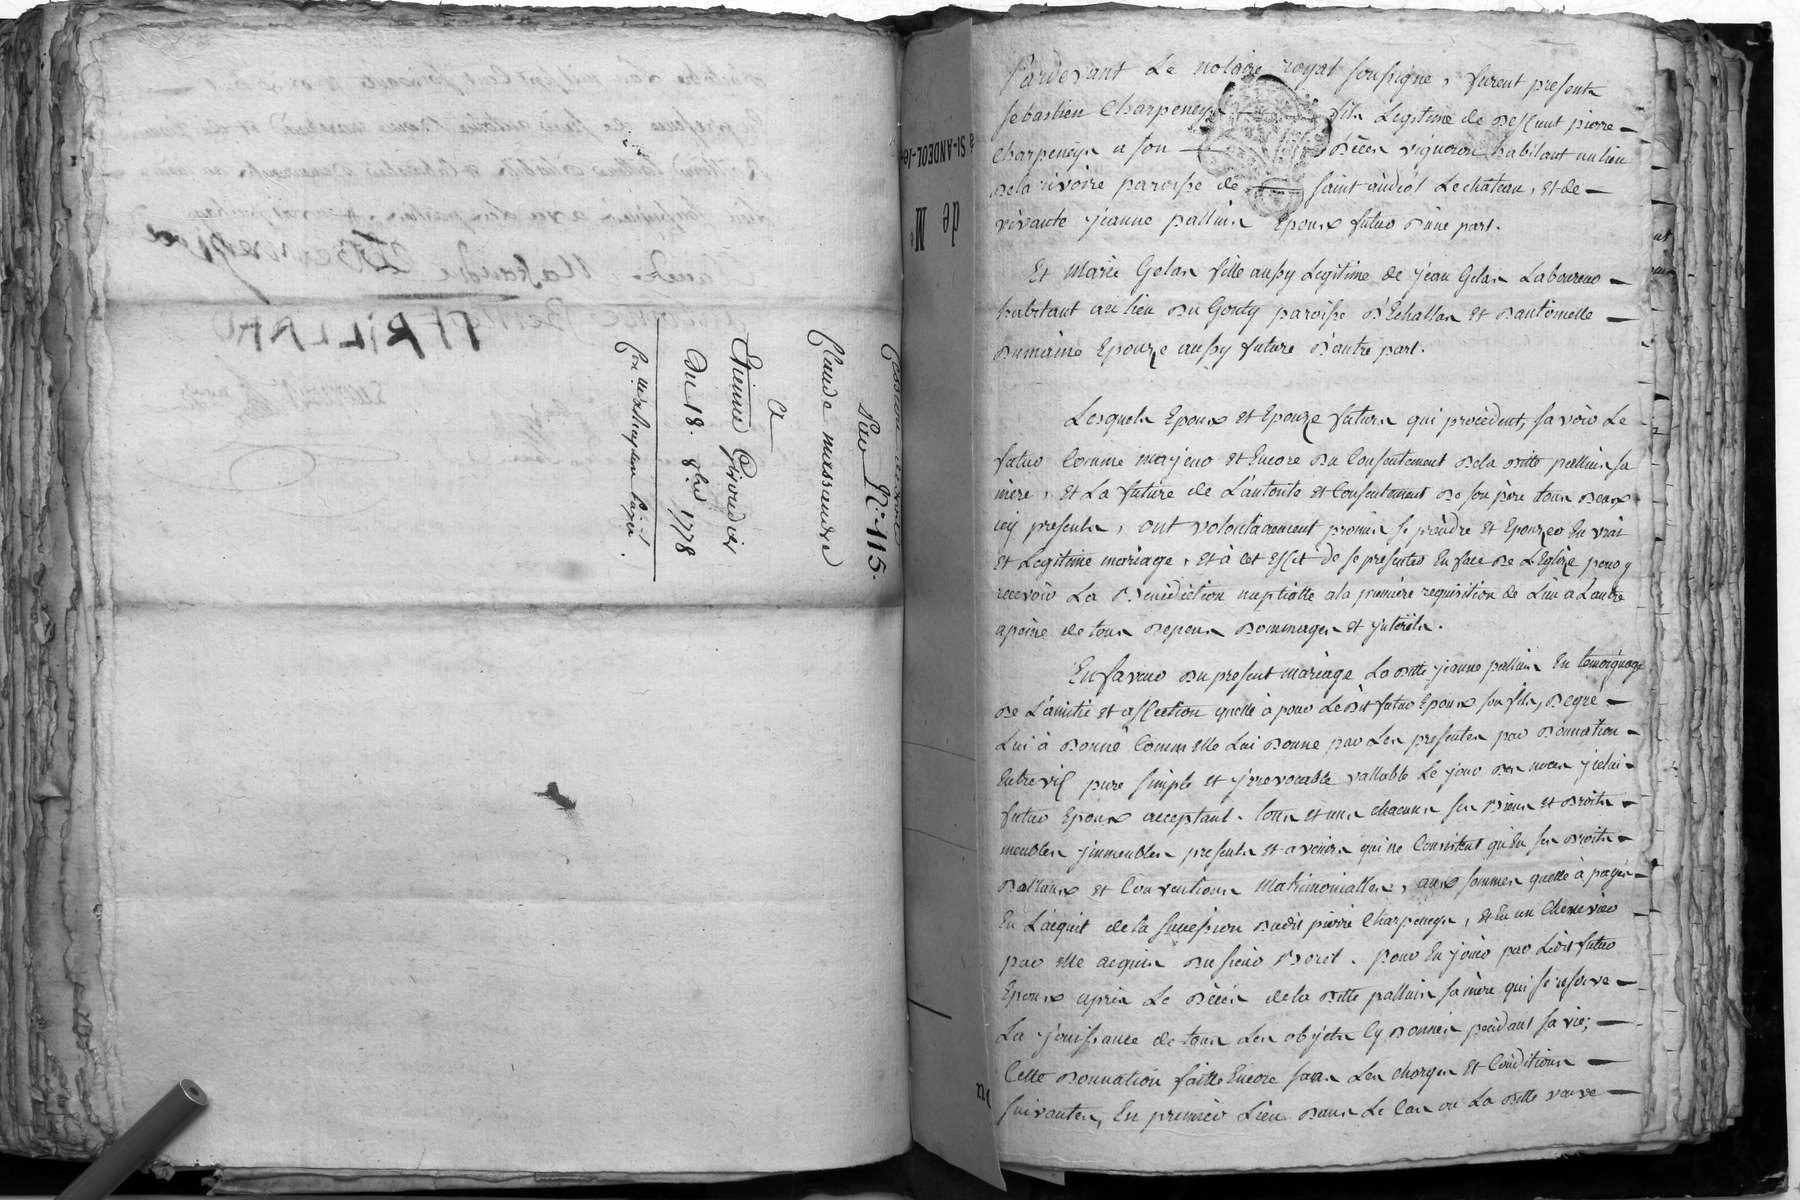 Cession de droits
Par N.º 115.
Claude massaudre
A
Etienne Giraudier
Du 18. 8bre 1778
à St-ANDÉOL-le-
de Me
Pardevant Le notaire royal soussigné, furent presents
Sebastien Charpeney fils Legitime de Deffunt pierre
Charpeney a son Décès vigneron habitant au lieu
De la rivoire paroisse de saint andéol Le chateau, et de
vivante jeanne pallin Epoux futur D'une part.
Et Marie Gelas fille aussy Legitime de jean Gelas Laboureur
habitant au lieu Du Gouty paroisse D'Echallas et D'antoinette
Dumaine Epouze aussy future D'autre part.
Lesquels Epoux et Epouze futurs qui procedent, savoir Le
futur Comme majeur et Encore Du Consentement De la Ditte pallin sa
mere, et La future de L'autorité et Consentement De son père tous Deux
icy presents, ont volontairement promis se prendre et Epouzer En vrai
et Legitime mariage, et à cet effet de se presenter En face De L'Eglize pour y
recevoir La Benediction nuptialle a la premiere requisition de L'un a L'autre
a peine de tous Depens Dommages et jnterêts.
En faveur Du present mariage La Ditte jeanne pallin En temoignage
De L'amitié et affection quelle à pour Le Dit futur Epoux son fils, De gré
Lui à Donné Comme elle Lui Donne par Les presentes par Donnation
Entre vif pure simple et jrrevocable vallable Le jour Des noces jcelui
futur Epoux acceptant. tous et uns chacuns ses Biens et Droits
meubles jmmeubles presents et avenirs qui ne Consistent qu'En ses Droits
Dotaux et Conventions Matrimonialles, aux sommes quelle à payés
En L'acquit de la succession Dudit pierre Charpeney, et En un Chenevier
par elle acquis Du sieur Boret. pour En jouir par Ledit futur
Epoux après Le Décès de la Ditte pallin sa mère qui se reserve
La jouissance de tous Les objets Cy Donnés pendant sa vie;
Cette Donnation faitte Encore sous Les charges et Conditions
suivantes, En premier Lieu Dans Le Cas ou La Ditte veuve